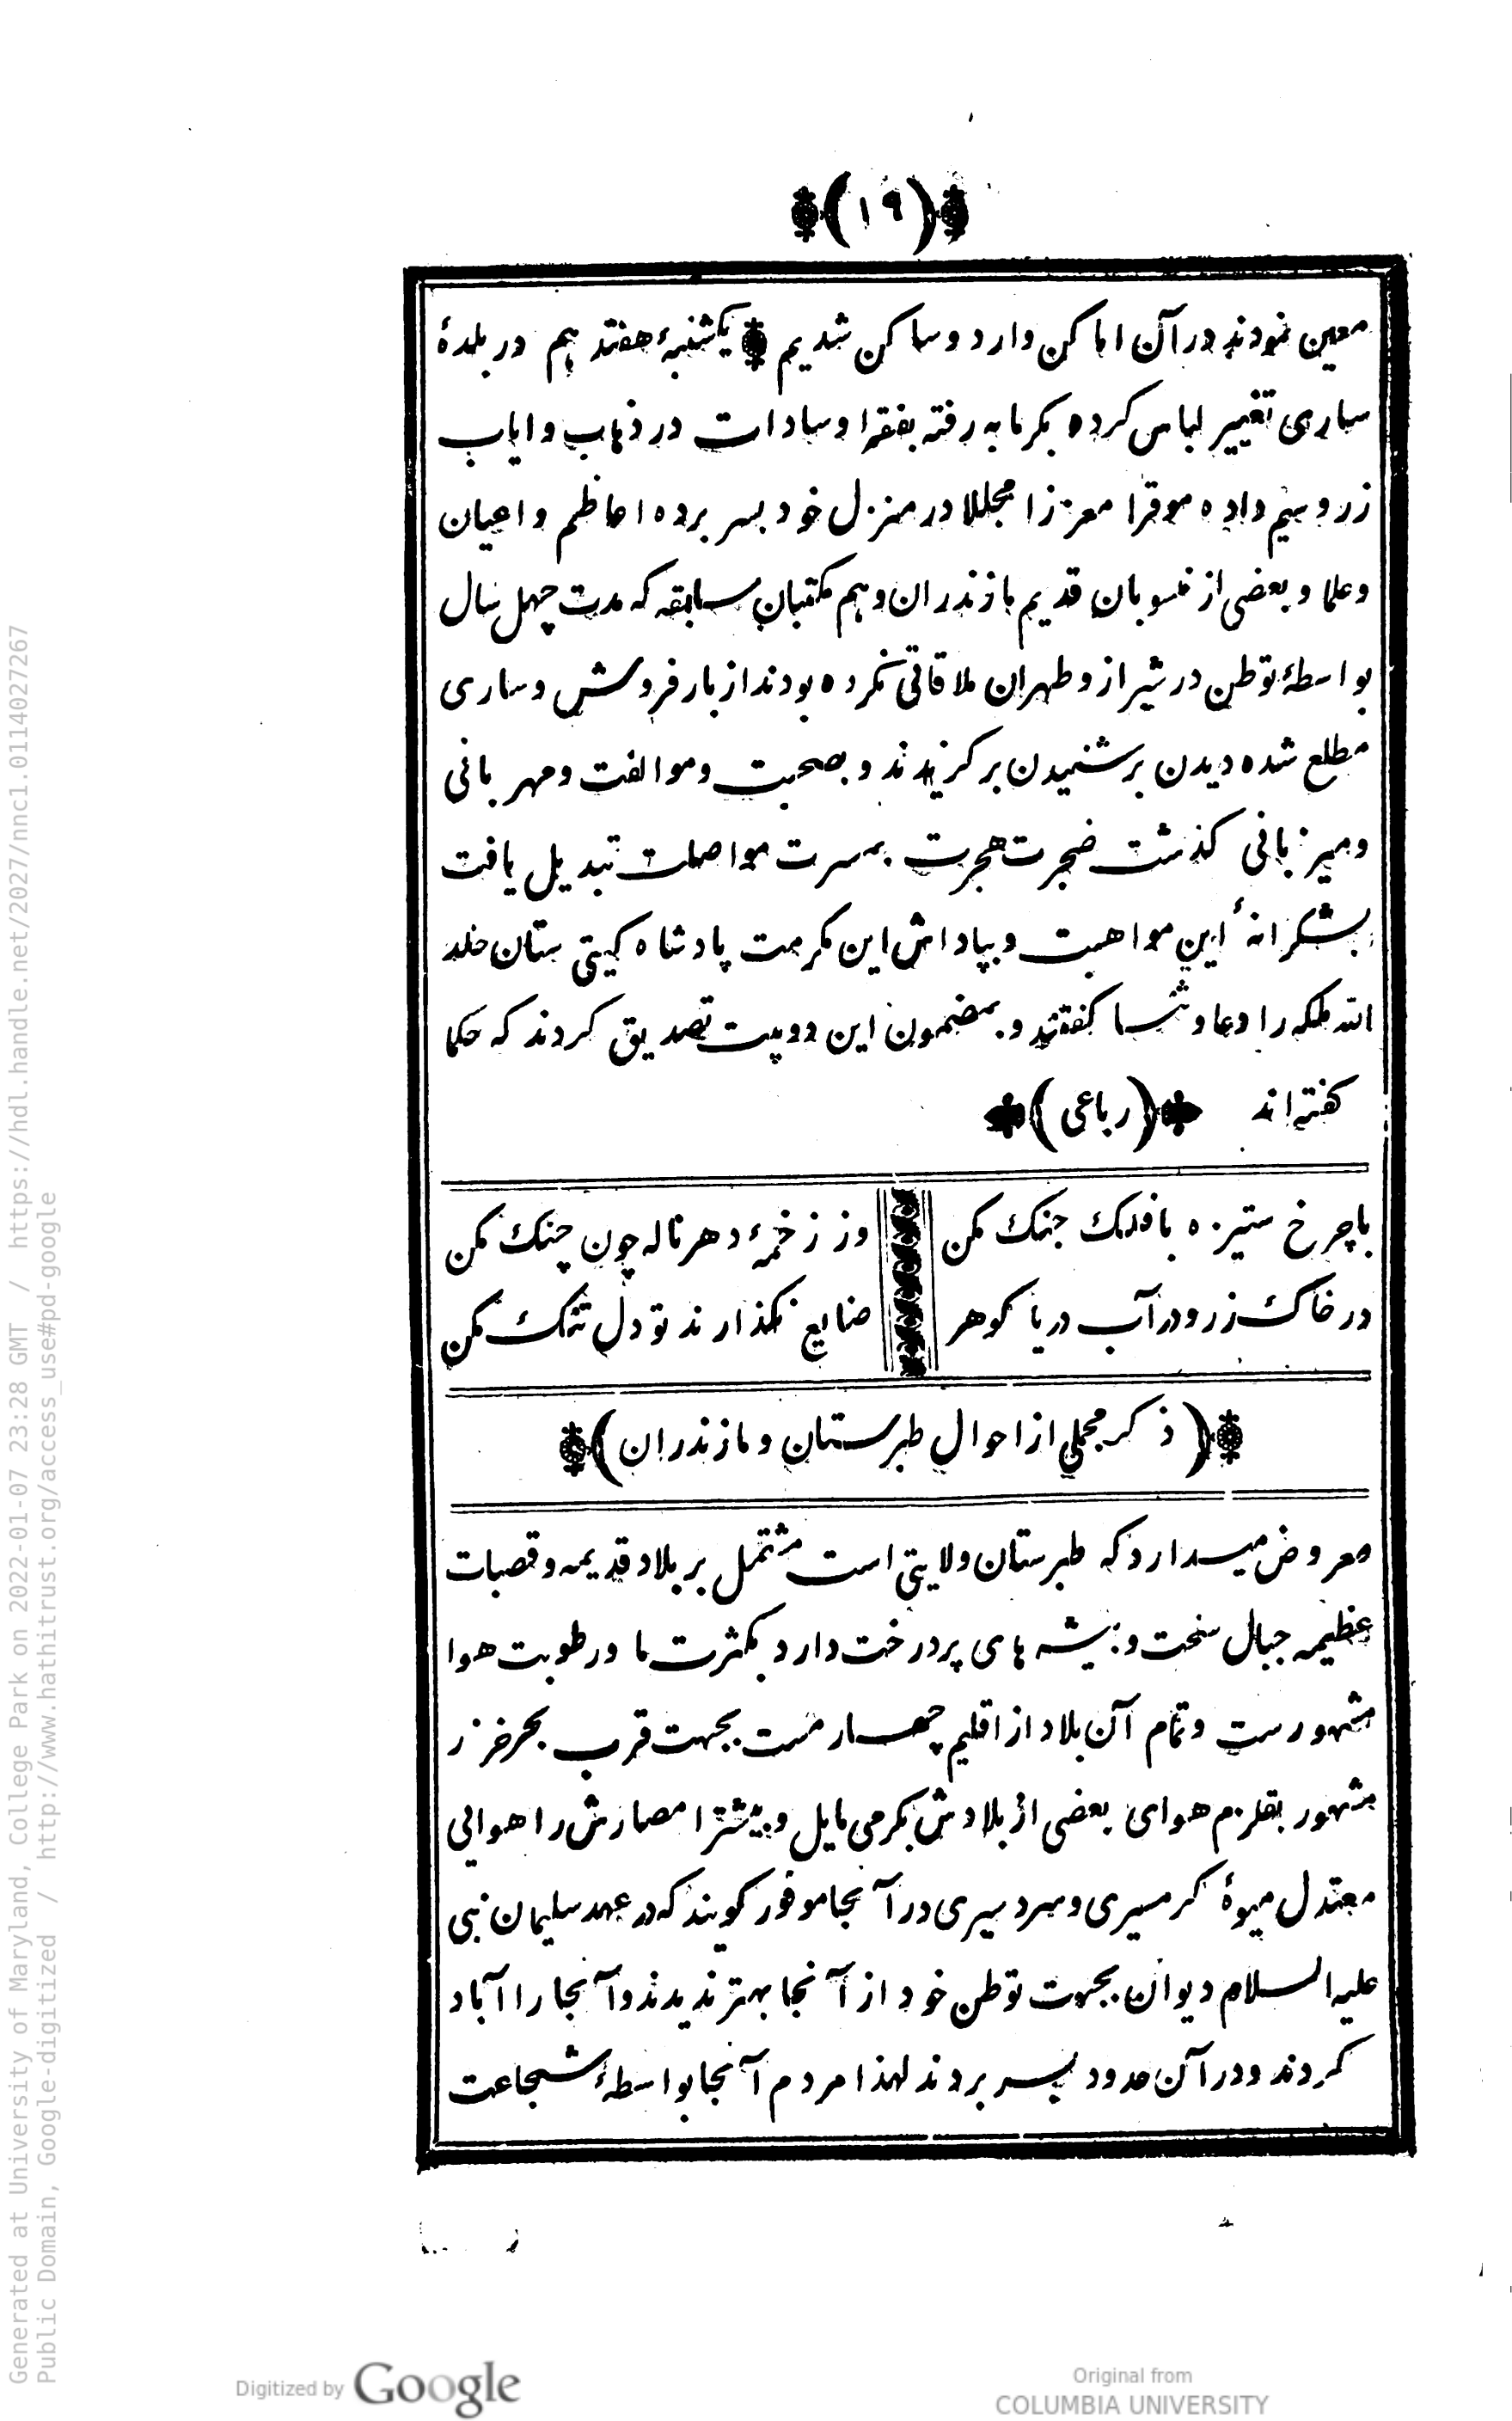 (۱۹)
معین نمودند در آن اماکن وارد و ساکن شدیم یکشنبهٔ هفتدهم در بلدهٔ
ساری تغییر لباس کرده بکرمابه رفته بفقرا و سادات در ذهاب و ایاب
زر و سیم داده موقرا معززا مجللا در منزل خود بسر برده اعاظم و اعیان
و علما و بعضی از منسوبان قدیم مازندران و هم مکتبان سابقه که مدت چهل سال
بواسطهٔ توطن در شیراز و طهران ملاقاتی نکرده بودند از بارفروش و ساری
مطلع شده دیدن بر شنیدن برکزیدند و بصحبت و موالفت و مهربانی
و میزبانی کذشت ضجرت هجرت بمسرت مواصلت تبدیل یافت
بشکرانهٔ این مواهبت و بپاداش این مکرمت پادشاه کیتی ستان خلد
الله ملکه را دعا و ثنا کفتند و بمضمون این دو بیت تصدیق کردند که حکما
کفته‌اند (رباعی)
با چرخ ستیزه با فلک جنک مکن وز زخمهٔ دهر ناله چون چنک مکن
در خاک زر و در آب دریا کوهر ضایع نکذارند تو دل تنک مکن
(ذکر مجملی از احوال طبرستان و مازندران)
معروض میدارد که طبرستان ولایتی است مشتمل بر بلاد قدیمه و قصبات
عظیمه جبال سخت و بیشه های پر درخت دارد بکثرت ما و رطوبت هوا
مشهورست و تمام آن بلاد از اقلیم چهارمست بجهت قرب بحر خزر
مشهور بقلزم هوای بعضی از بلادش بکرمی مایل و بیشتر امصارش را هوائی
معتدل میوهٔ کرمسیری و سردسیری در آنجا موفور کویند که در عهد سلیمان نبی
علیه السلام دیوان بجهت توطن خود از آنجا بهتر ندیدند و آنجا را آباد
کردند و در آن حدود بسر بردند لهذا مردم آنجا بواسطهٔ شجاعت
Generated at University of Maryland, College Park on 2022-01-07 23:28 GMT / https://hdl.handle.net/2027/nnc1.0114027267
Public Domain, Google-digitized / http://www.hathitrust.org/access_use#pd-google
Digitized by Google
Original from
COLUMBIA UNIVERSITY